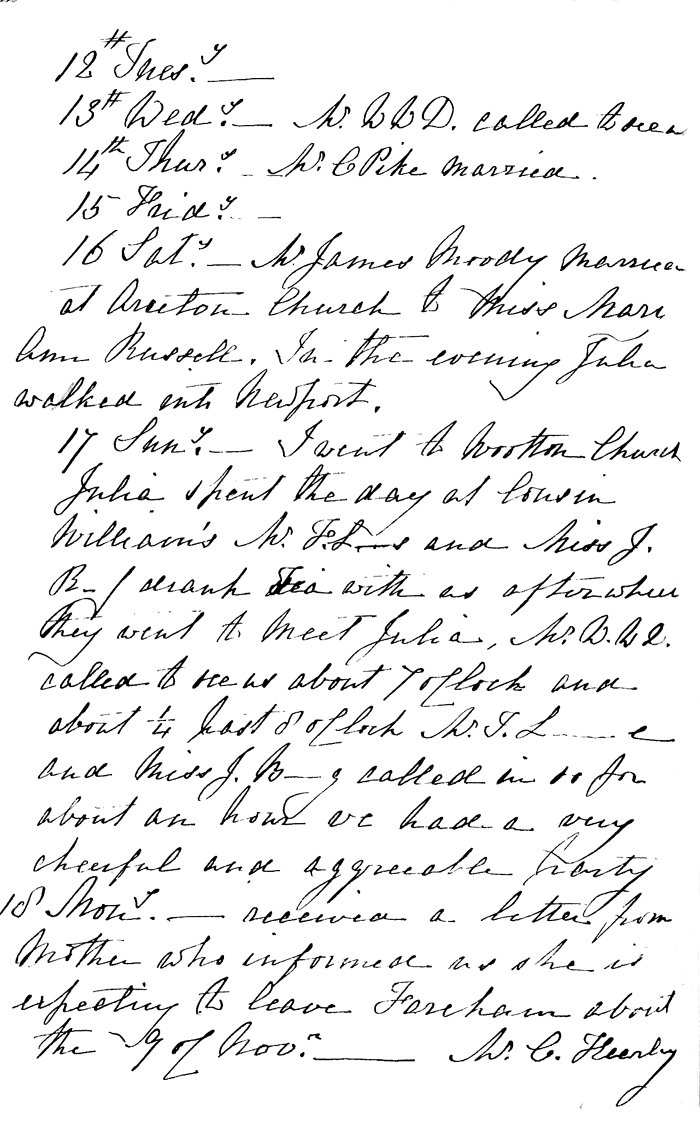 12th Tues.y —
13th Wed.y — Mr. W W D. called to see
14th Thur.y — Mr. C Pike married.
15 Frid.y —
16 Sat.y — Mr James Moody married
at Arreton Church to Miss Mary
Ann Russell. In the evening Julia
walked into Newport.
17 Sun.y — I went to Wootton Church
Julia spent the day at Cousin
William's Mr. F. L—s and Miss J.
B—g drank Tea with us afterwhich
they went to meet Julia, Mr. W. W. D.
called to see us about 7 o'Clock and
about ¼ past 8 o'Clock Mr. T. L——e
and Miss J. B—g called in so for
about an hour we had a very
cheerful and aggreeable party
18 Mon.y — received a letter from
Mother who informed us she is
expecting to leave Fareham about
the 9 of Nov.r —— Mr. C.